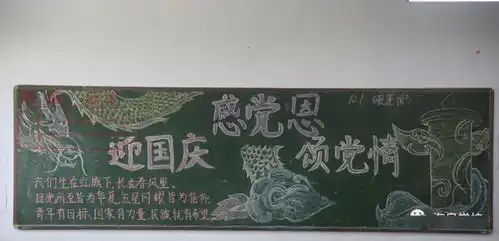 感党恩
迎国庆
颂党情
我们生在红旗下,长在春风里。
目光所至皆为华夏,五星闪耀皆为信仰。
青年有目标,国家有力量,民族就有希望。